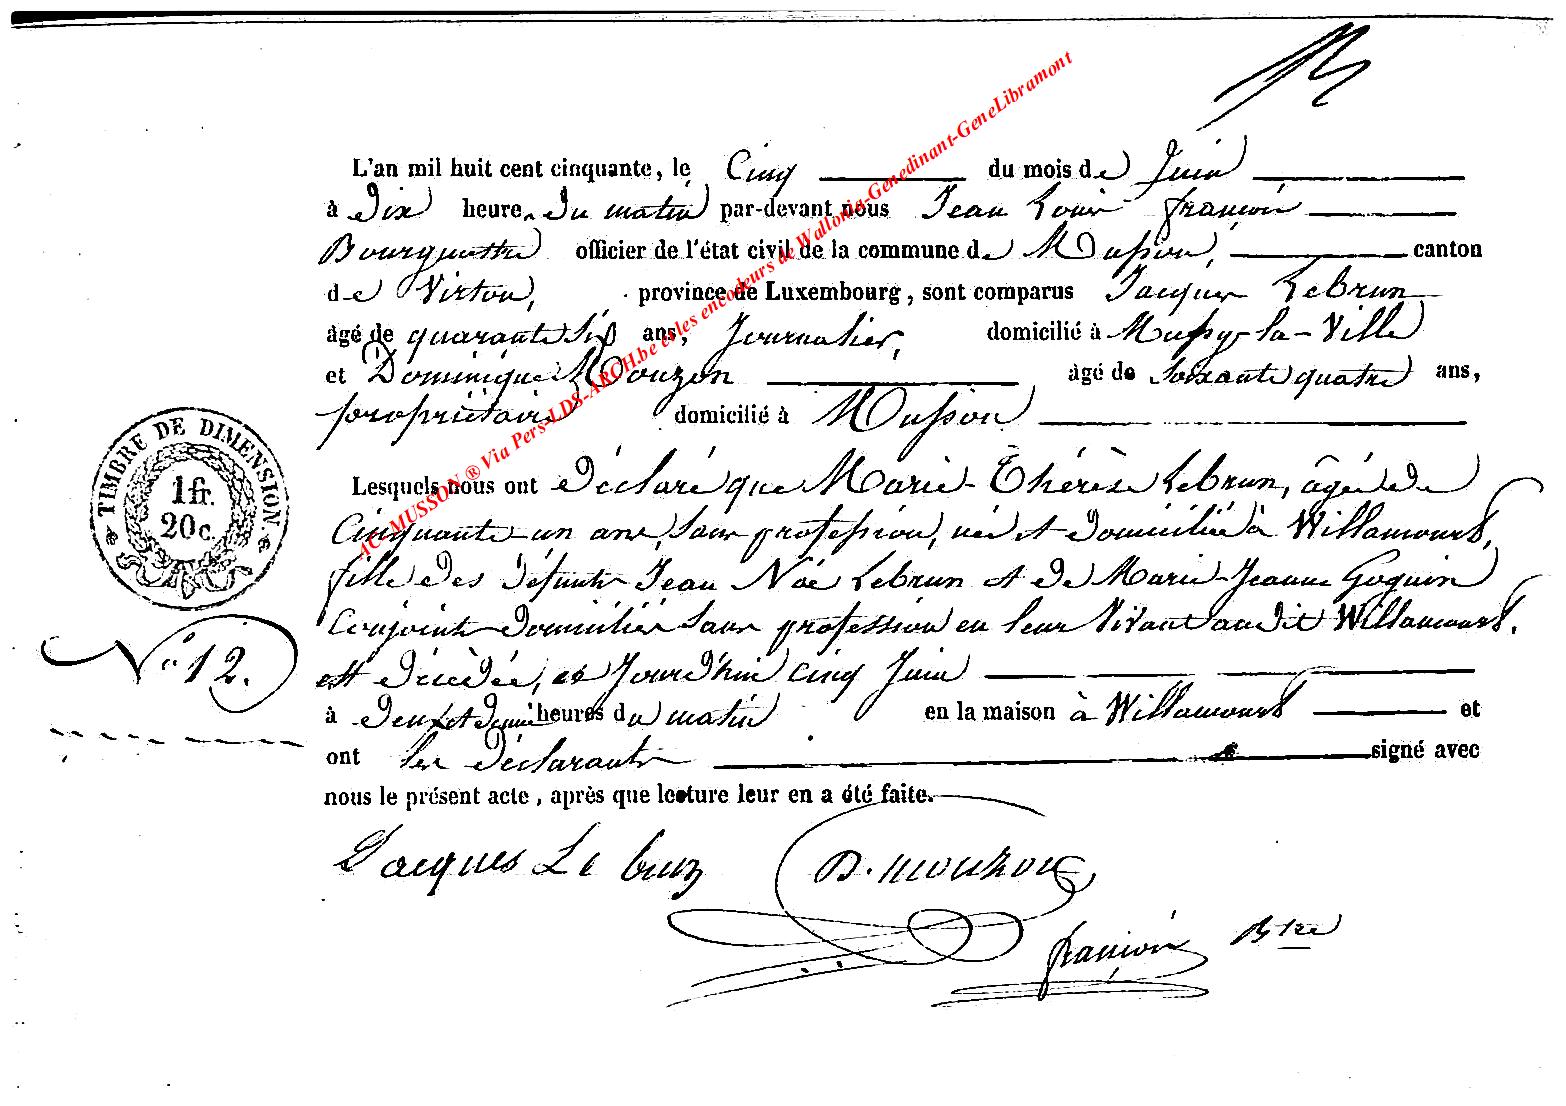 L'an mil huit cent cinquante, le Cinq du mois de Juin
à Dix heures du matin par-devant nous Jean Louis françois
Bourgmestre officier de l'état civil de la commune de Musson, canton
de Virton, province de Luxembourg, sont comparus Jacques Lebrun
âgé de quarante six ans, Journalier, domicilié à Mussy-la-Ville
et Dominique Mouzon âgé de soixante quatre ans,
propriétaire domicilié à Musson
Lesquels nous ont Déclaré que Marie-Thérèse Lebrun, âgée de
Cinquante-un ans, sans profession, née et domiciliée à Willancourt,
fille des Défunts Jean Noé Lebrun et de Marie-Jeanne Goguin
Conjoints domiciliés sans profession en leur vivant audit Willancourt.
est décédée, ce Jourd'hui cinq Juin
à deux et demie heures du matin en la maison à Willancourt et
ont les Déclarants signé avec
nous le présent acte, après que lecture leur en a été faite.
TIMBRE DE DIMENSION.
1 fr.
20 c.
N° 12.
Jacques Le brun D. mouzon
françois Btre
AC-MUSSON ® Via Pers-LDS-ARCH.be et les encodeurs de Wallonia-Genedinant-GeneLibramont